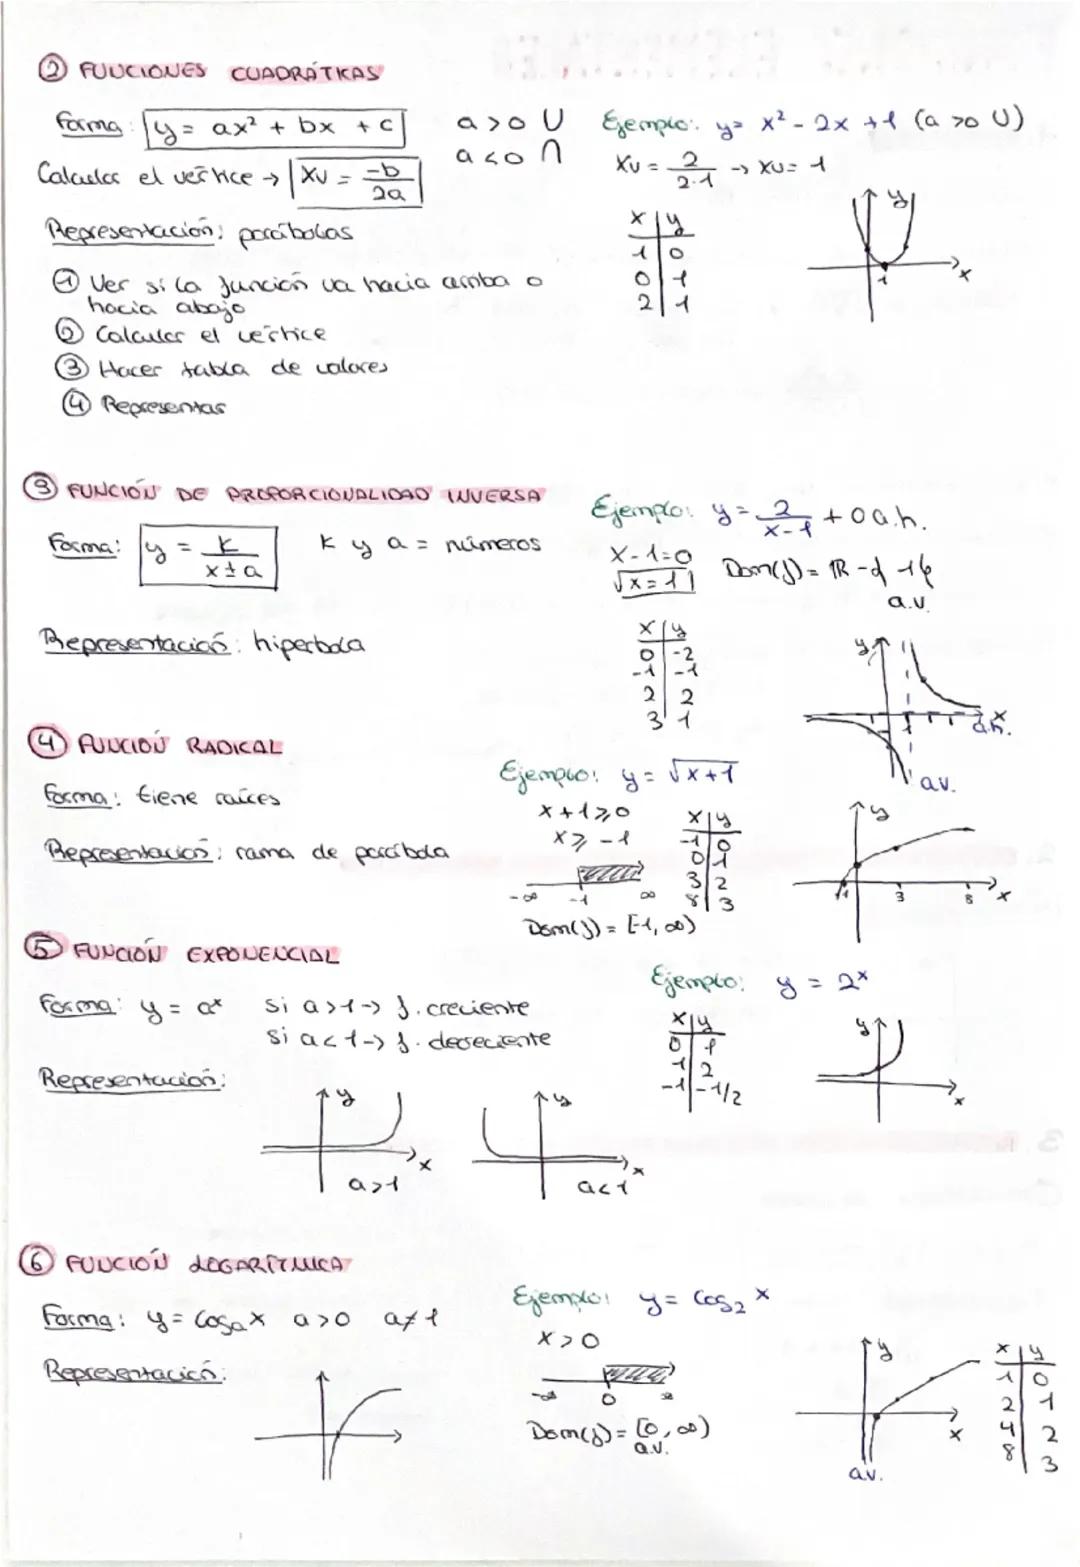 ② FUNCIONES CUADRÁTICAS
Forma: y = ax² + bx + c
a>0 ∪
a<0 ∩
Calcular el vértice → Xv = -b/2a
Representación: parábolas
① Ver si la función va hacia arriba o
hacia abajo
② Calcular el vértice
③ Hacer tabla de valores
④ Representar
Ejemplo: y = x² - 2x + 1 (a>0 ∪)
Xv = 2/2·1 → Xv = 1
x | y
1 | 0
0 | 1
2 | 1
y
1
x
③ FUNCIÓN DE PROPORCIONALIDAD INVERSA
Forma: y = K/x±a
K y a = números
Representación: hiperbola
Ejemplo: y = 2/x-1 + 0 a.h.
x-1=0
x=1
Dom(f) = ℝ - {1}
a.v.
x | y
0 | -2
-1 | -1
2 | 2
3 | 1
y
1
x
a.h.
a.v.
④ FUNCIÓN RADICAL
Forma: tiene raíces
Representación: rama de parábola
Ejemplo: y = √x+1
x+1≥0
x≥-1
-∞ -1 ∞
Dom(f) = [-1, ∞)
x | y
-1 | 0
0 | 1
3 | 2
8 | 3
y
-1 3 8 x
⑤ FUNCIÓN EXPONENCIAL
Forma: y = aˣ
si a>1 → f. creciente
si a<1 → f. decreciente
Representación:
y
x
a>1
y
x
a<1
Ejemplo: y = 2ˣ
x | y
0 | 1
1 | 2
-1 | -1/2
y
x
⑥ FUNCIÓN LOGARÍTMICA
Forma: y = logₐx a>0 a≠1
Representación:
Ejemplo: y = log₂ x
x>0
-∞ 0 ∞
Dom(f) = [0, ∞)
a.v.
y
x
a.v.
x | y
1 | 0
2 | 1
4 | 2
8 | 3